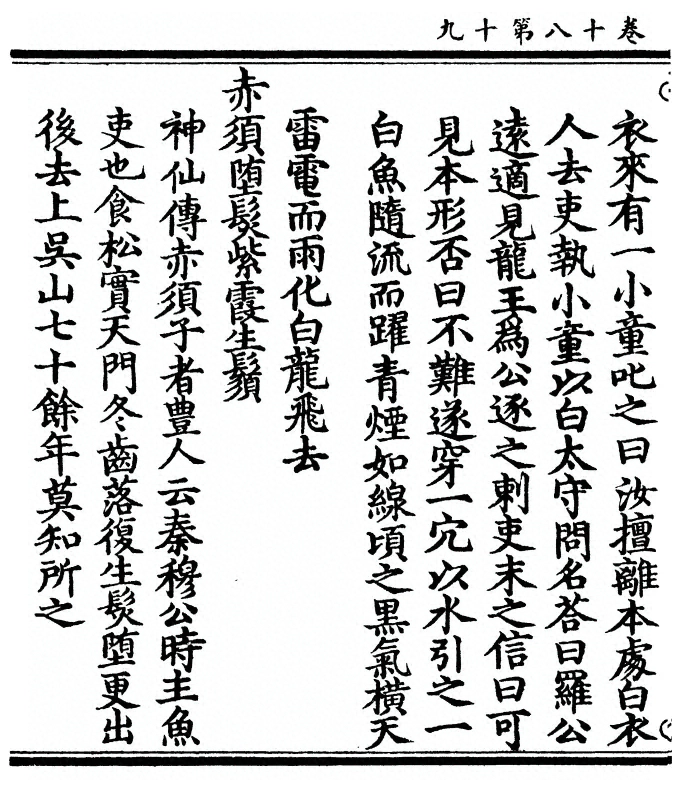 卷十八第十九
衣來有一小童叱之曰汝擅離本處白衣
人去吏執小童以白太守問名荅曰羅公
遠適見龍王爲公逐之刺吏未之信曰可
見本形否曰不難遂穿一穴以水引之一
白魚隨流而躍青煙如線頃之黒氣橫天
雷電而雨化白龍飛去
赤須墮髮紫霞生鬚
神仙傳赤須子者豊人云秦穆公時主魚
吏也食松實天門冬齒落復生髮墮更出
後去上吳山七十餘年莫知所之